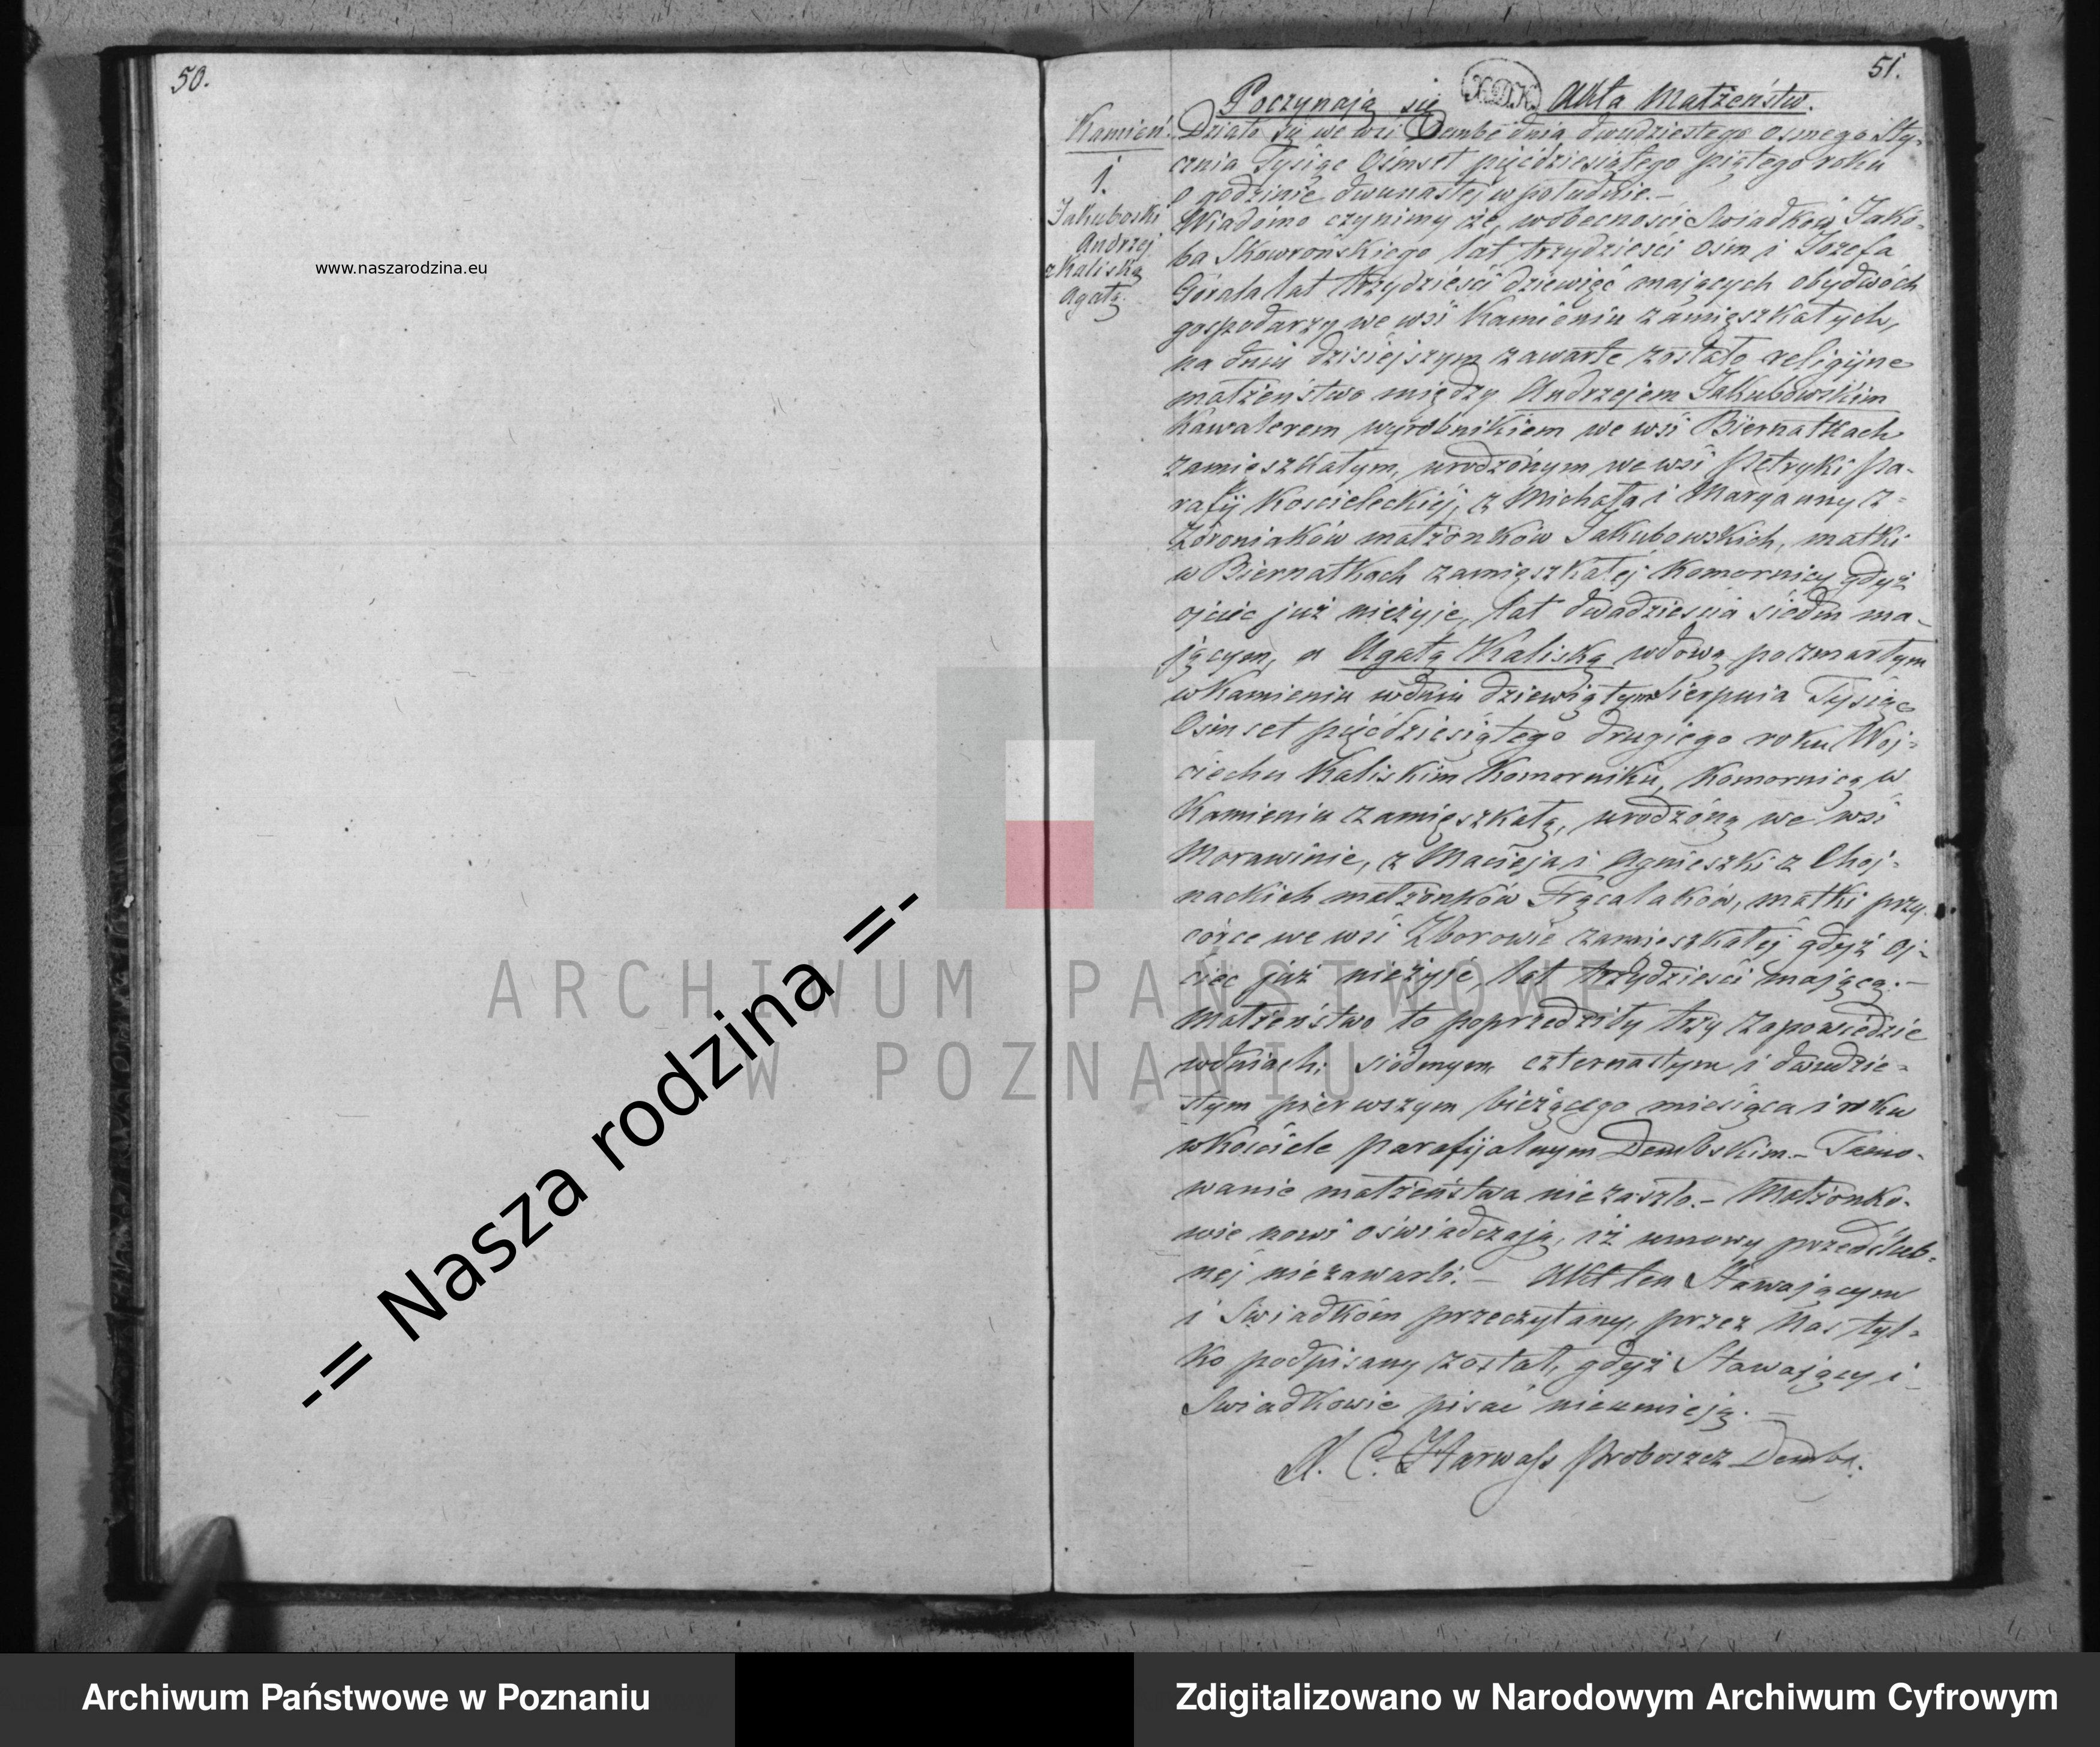 50.
www.naszarodzina.eu
51.
Poczynają się Akta Małżeństw.
Kamień.
1.
Jakuboski
Andrzej
z Kaliską
Agatą.
Działo się we wsi Dembe dnia dwudziestego osmego Sty-
cznia Tysiąc Ośmset pięćdziesiątego piątego roku
o godzinie dwunastej w południe.–
Wiadomo czynimy że, wobecności Swiadków Jakó-
ba Skowrońskiego lat trzydzieści ośm i Józefa
Górala lat trzydzieści dziewięć mających obydwóch
gospodarzy we wsi Kamieniu zamięszkałych,
na dniu dzisiejszym zawarte zostało religijne
małżeństwo między Andrzejem Jakubowskim
Kawalerem wyrobnikiem we wsi Biernatkach
zamięszkałym, urodzonym we wsi Petryki pa-
rafij Koscieleckiéj, z Michała i Maryanny z
Zdroniaków małżonków Jakubowskich, matki
w Biernatkach zamięszkałej Komornicy gdyż
ojciec już nieżyje, lat dwadzieścia siedm ma-
jącym, a Agatą Kaliską wdową po zmarłym
w Kamieniu w dniu dziewiątym Sierpnia Tysiąc
Osmset pięćdziesiątego drugiego roku Woj-
ciechu Kaliskim Komorniku, Komornicą w
Kamieniu zamięszkałą, urodzoną we wsi
Morawinie, z Macieja i Agnieszki z Choj-
nackich małżonków Frącalaków, matki przy
córce we wsi Zborowie zamieszkałej gdyż oj-
ciec już nieżyje, lat trzydzieści mającą.–
Małżeństwo to poprzedziły trzy zapowiedzie
w dniach: siódmym czternastym i dwudzie-
stym pierwszym bieżącego miesiąca i roku
w Kościele parafijalnym Dembskim.– Tamo-
wanie małżeństwa nie zaszło.– Małżonko-
wie nowi oświadczają, iż umowy przedślub-
néj niezawarli.– Akt ten Stawającym
i Świadkóm przeczytany, przez Nas tyl-
ko podpisany został, gdyż Stawający i
Swiadkowie pisać nieumieją.–
Proboszcz Demba.
-= Nasza rodzina =-
ARCHIWUM PAŃSTWOWE
W POZNANIU
Archiwum Państwowe w Poznaniu
Zdigitalizowano w Narodowym Archiwum Cyfrowym